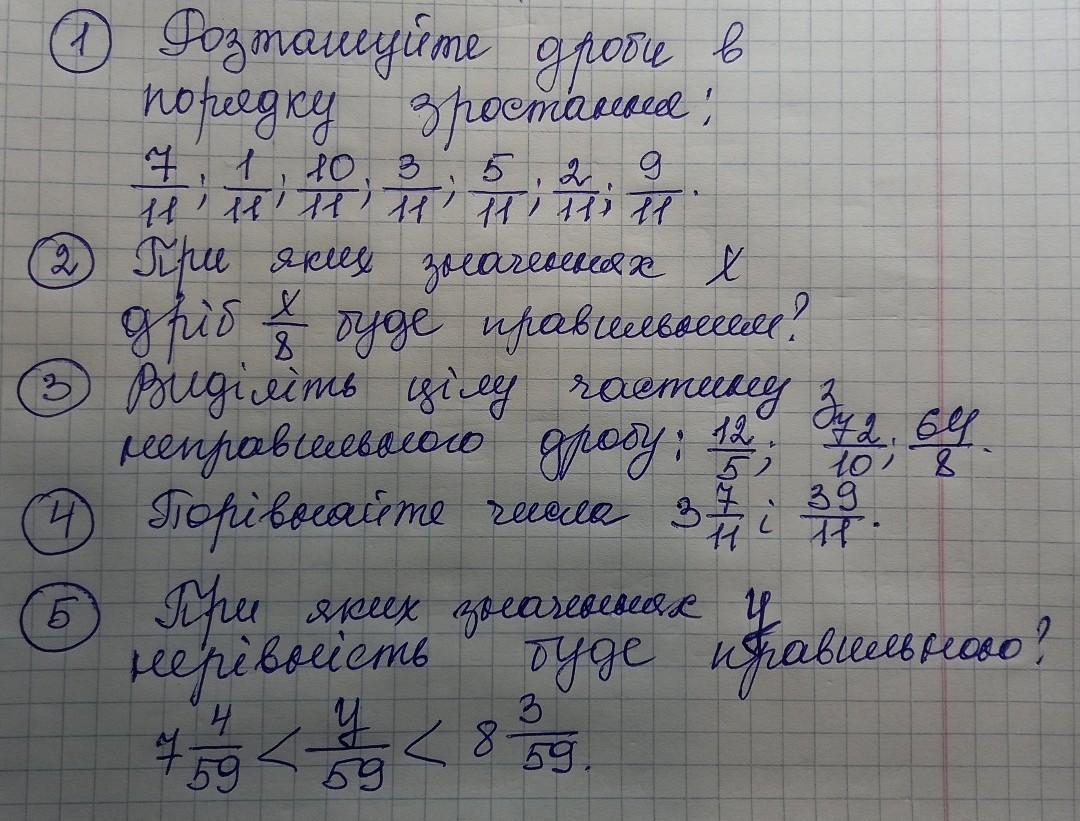 1 Розташуйте дроби в
порядку зростання:
7/11; 1/11; 10/11; 3/11; 5/11; 2/11; 9/11.
2 При яких значеннях x
дріб x/8 буде правильним?
3 Виділіть цілу частину з
неправильного дробу: 12/5; 72/10; 64/8.
4 Порівняйте числа 3 7/11 і 39/11.
5 При яких значеннях y
нерівність буде правильною?
7 4/59 < y/59 < 8 3/59.